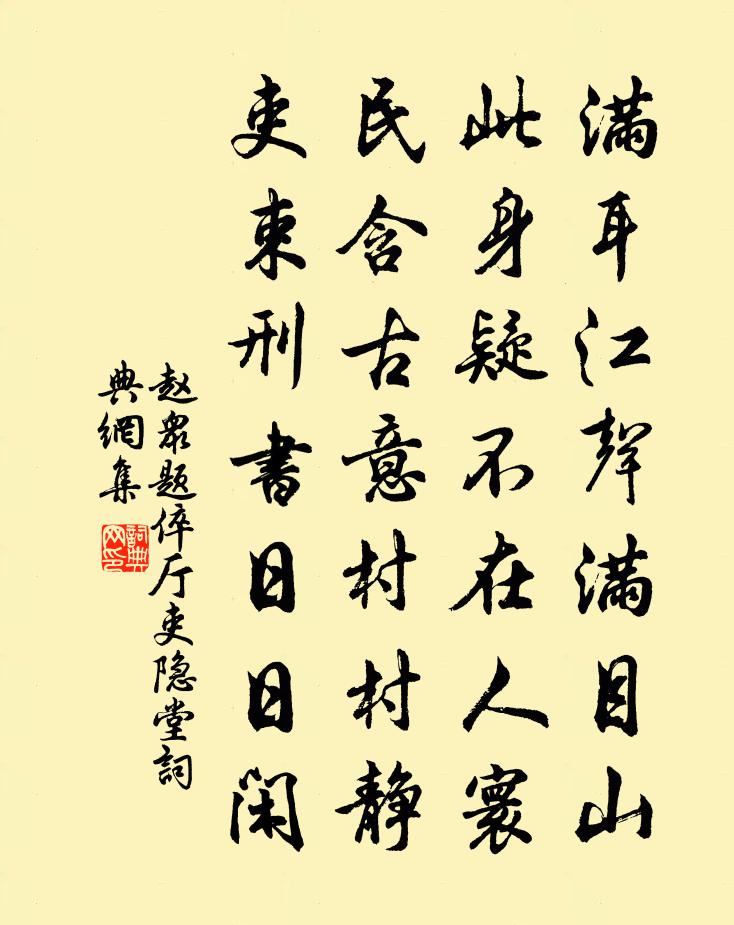 满耳江聲满目山
此身疑不在人寰
民含古意村村静
吏束刑书日日闲
赵众题倅厅吏隐堂詞
典網集
詞典
网印